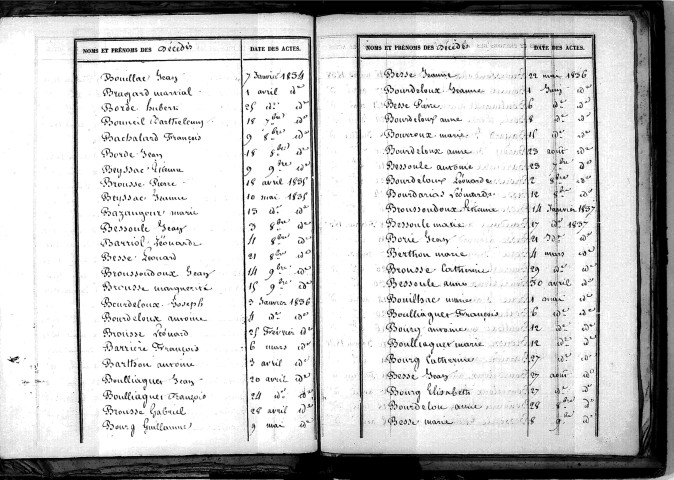 NOMS ET PRÉNOMS DES Décédés DATE DES ACTES.
Bouillac Jean 7 Janvier 1834
Bragard martial 1 avril de
Borde hubert 25 de de
Bouneil Barthelemy 18 7bre de
Bachalard François 9 8bre de
Borde Jean 18 8bre de
Beyssac Etienne 9 9bre de
Brousse Pierre 18 avril 1835
Beyssac Jeanne 10 mai 1835
Bazangeur marie 13 de de
Bessoule Jean 3 8bre de
Barriol Léonarde 4 8bre de
Besse Léonard 21 8bre de
Broussoudoux Jean 14 9bre de
Brousse marguerite 15 9bre de
Bourdeloux Joseph 3 Janvier 1836
Bourdeloux antoine 4 de de
Brousse Léonard 25 Février de
Barrière François 6 mars de
Barthon antoine 3 avril de
Boulliaguet Jean 20 avril de
Boulliaguet François 24 de de
Brousse Gabriel 28 avril de
Bourg Guillaume 9 mai de
NOMS ET PRÉNOMS DES Décédés DATE DES ACTES.
Besse Jeanne 22 mai 1836
Bourdeloux Jeanne 1 Juin de
Besse Pierre 6 de de
Bourdeloux anne 8 de de
Bourroux marie 15 de de
Bourdeloux anne 23 août de
Bessoule antoine 23 7bre de
Bourdeloux Léonarde 2 8bre de
Bourdarias Léonarde 12 8bre de
Broussoudoux Etienne 14 Janvier 1837
Bessoule marie 17 de 1837
Borie Jean 21 de de
Berthon marie 4 mars de
Brousse Catherine 29 de de
Bessoule anne 30 avril de
Bouilhac marie 1 mai de
Boulliaguet François 6 de de
Bourg antoine 12 de de
Boulliaguet marie 12 de de
Bourg Catherine 27 de de
Besse Jean 27 août de
Bourg Elisabeth 27 de de
Bourdelou anne 28 8bre de
Besse marie 8 9e de